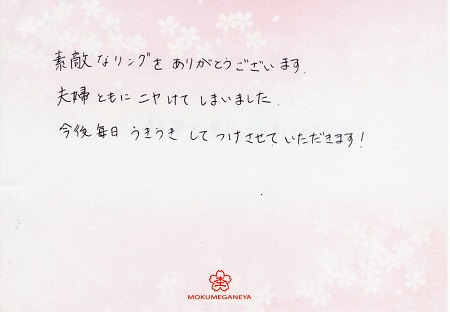 素敵なリングをありがとうございます.
夫婦ともにニヤけてしまいました.
今後毎日うきうきしてつけさせていただきます!
MOKUMEGANEYA